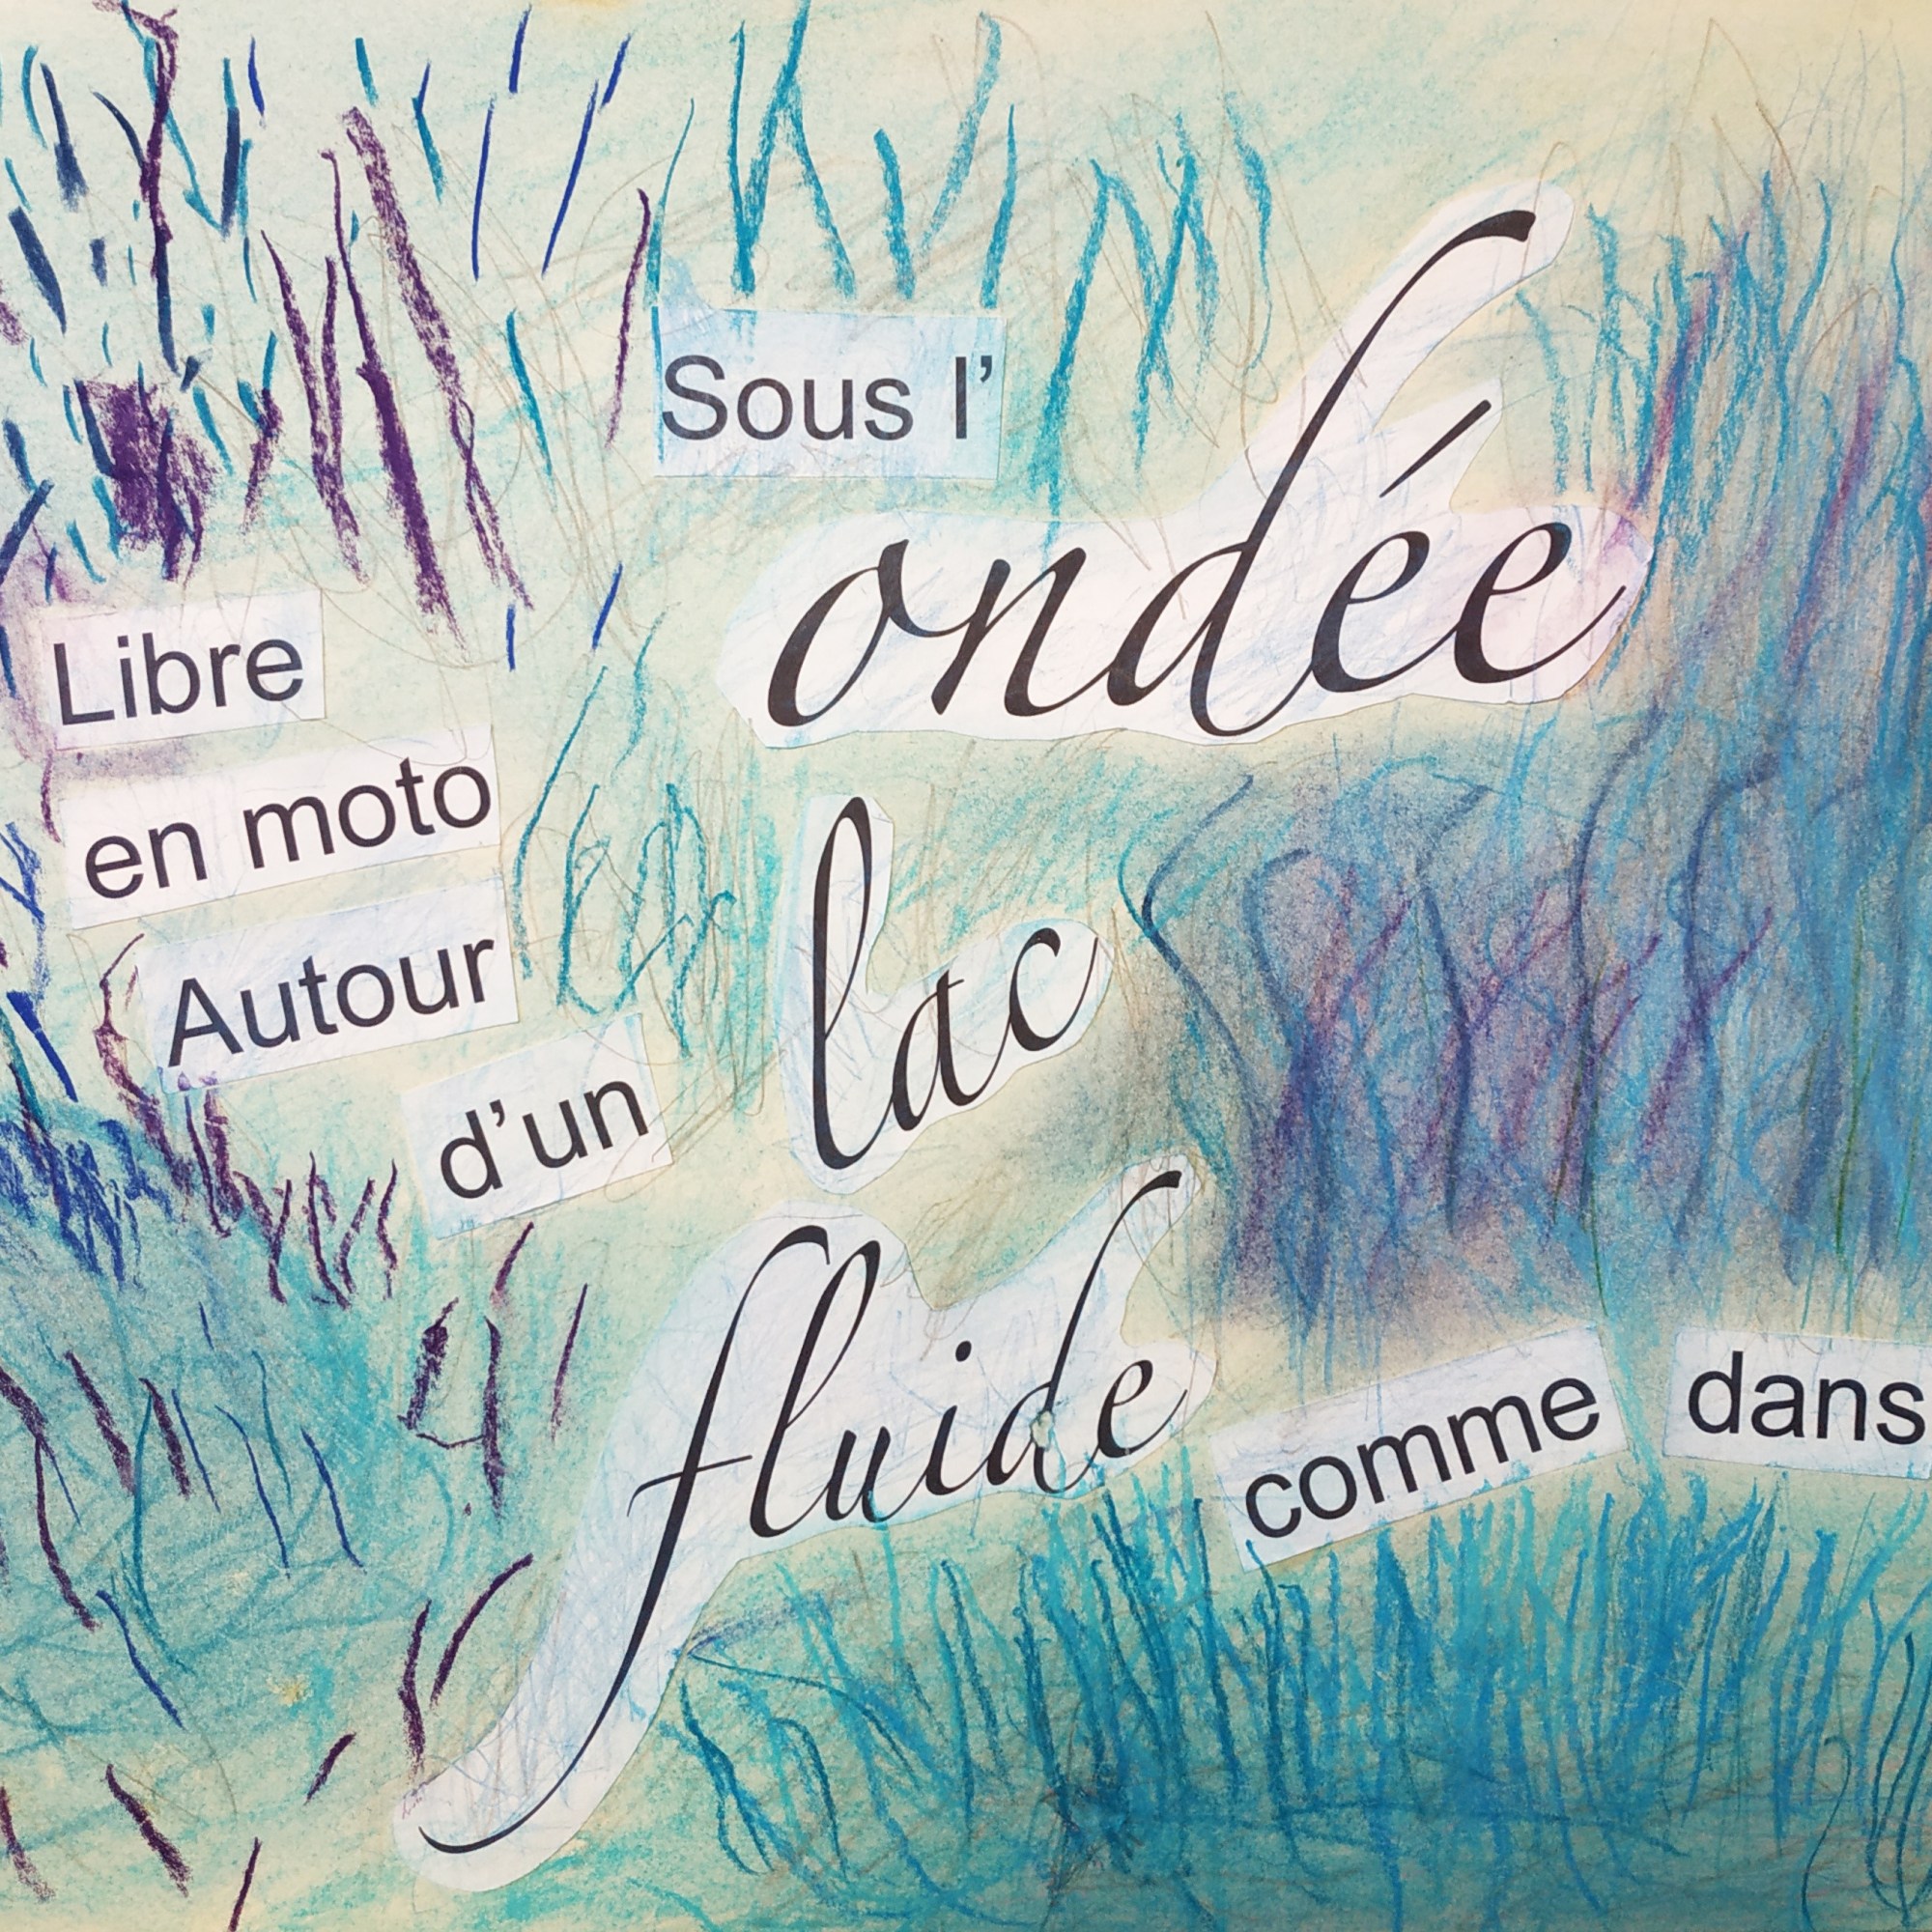 Sous l'
ondée
Libre
en moto
Autour
d'un
lac
fluide
comme dans